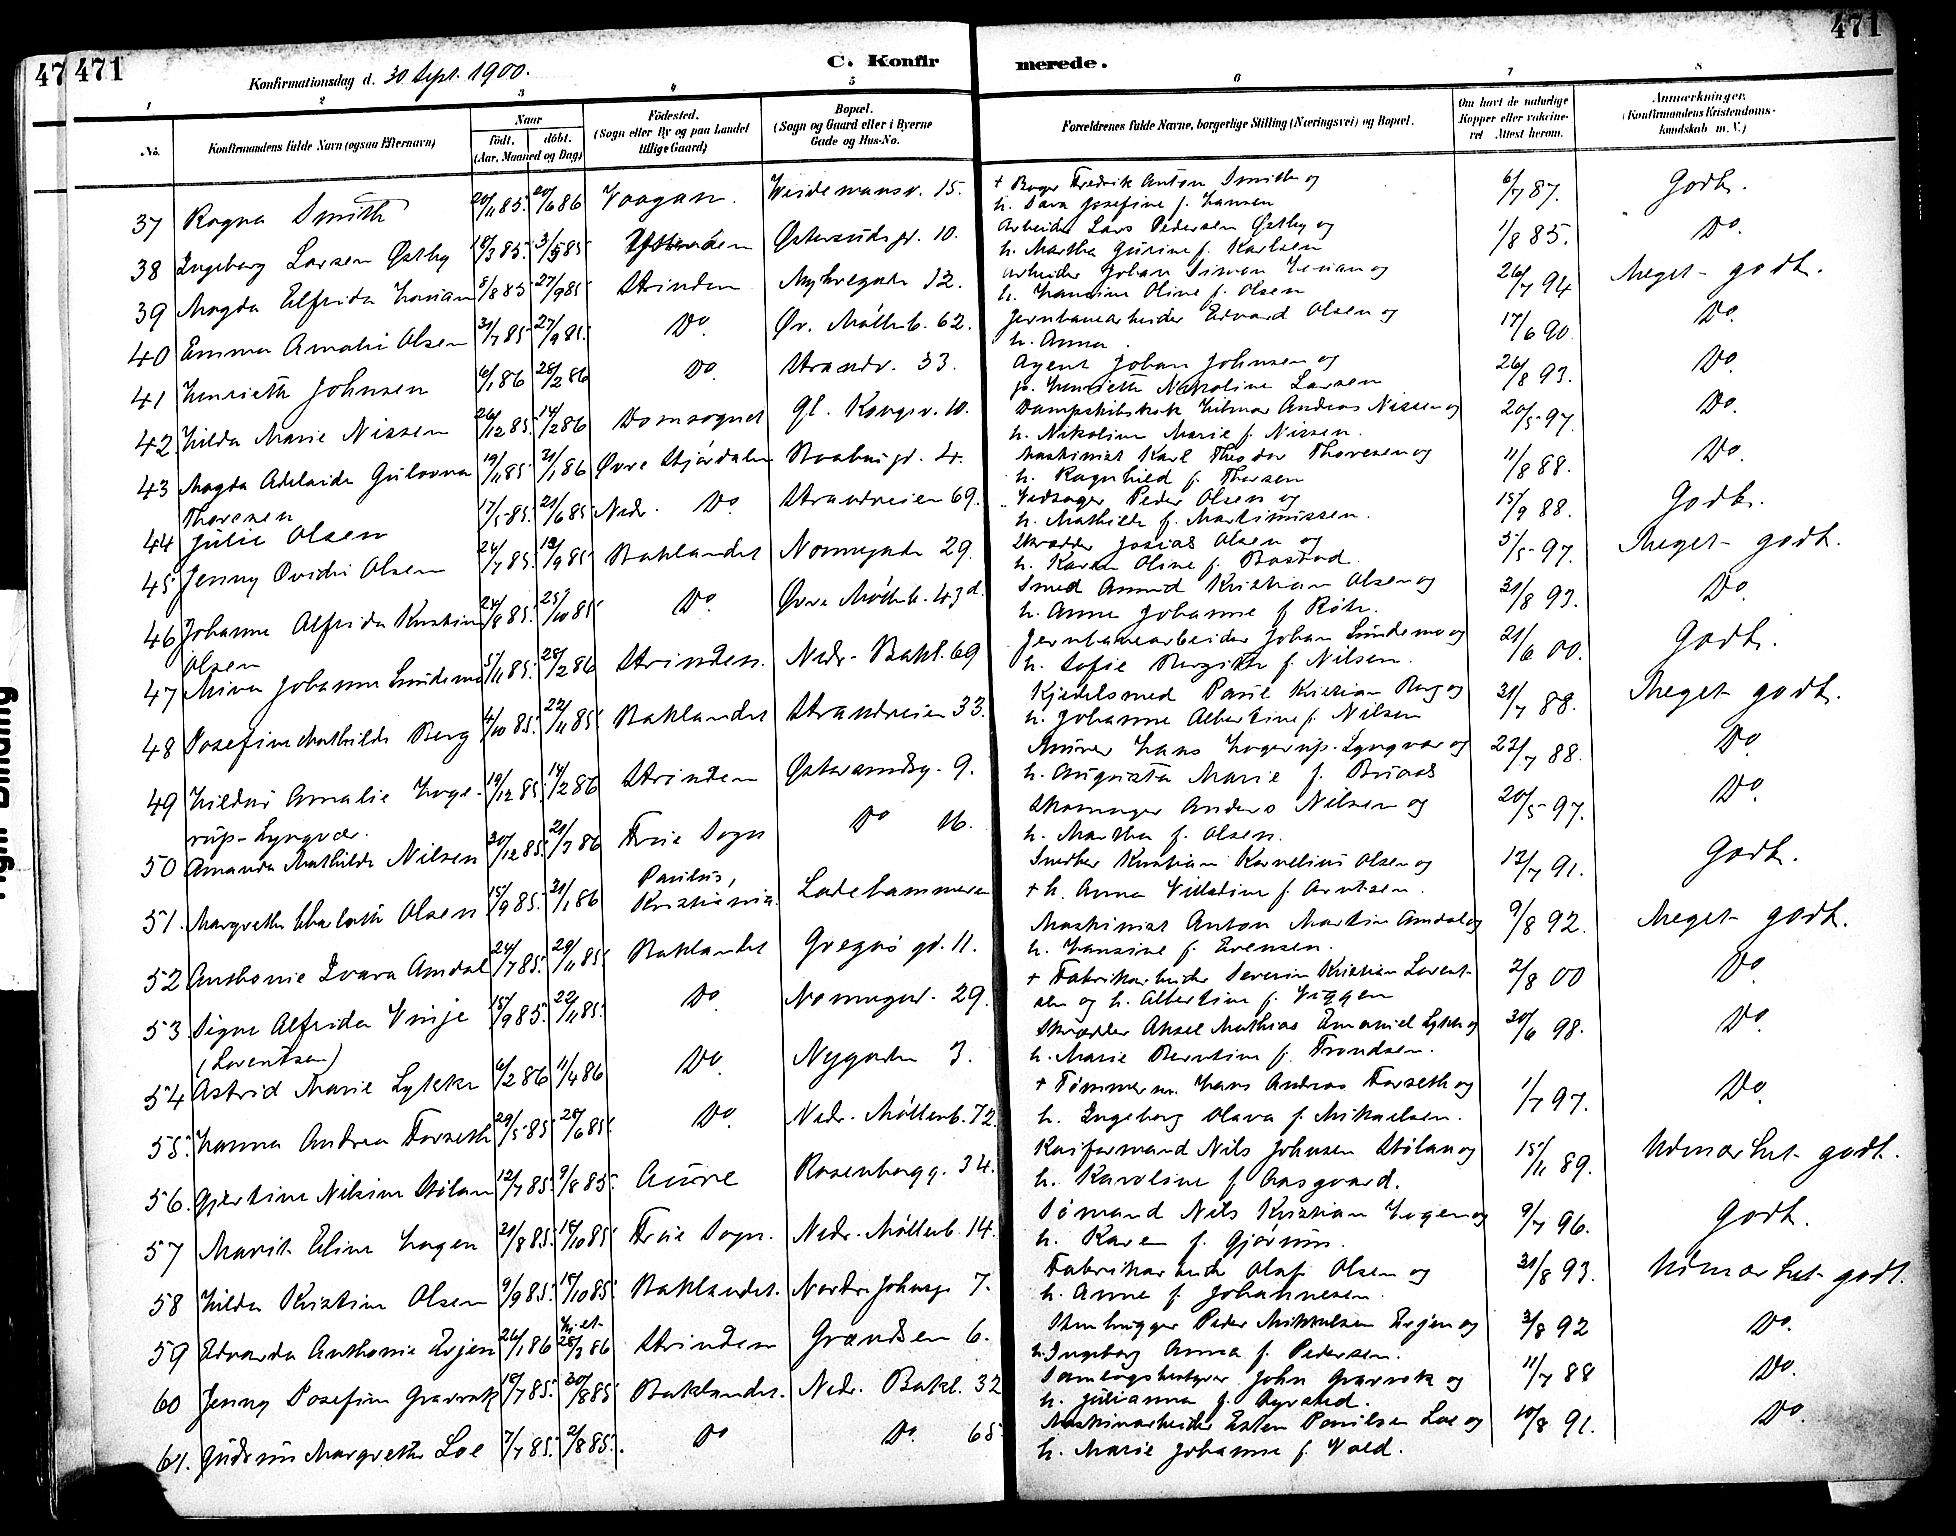 47 471
471
C. Konfirmerede.
Konfirmationsdag d. 30 Sept. 1900.
1 2 3 4 5 6 7 8
No. Konfirmandens fulde Navn (ogsaa Efternavn) Naar födt. döbt. (Aar, Maaned og Dag) Födested. (Sogn eller By og paa Landet tillige Gaard) Bopæl. (Sogn og Gaard eller i Byerne Gade og Hus-No. Forældrenes fulde Navne, borgerlige Stilling (Næringsvei) og Bopæl. Om havt de naturlige Kopper eller vaccineret Attest herom. Anmærkninger. (Konfirmandens Kristendomskundskab m. V.)
37 Ragna Smith 20/11 85. 20/6 86 Vaagan. Weidemansv. 15. + Bager Fredrik Anton Smith og
h. Sara Josefine f. Hansen 6/7 87. Godt.
38 Ingeborg Larsen Østby 18/3 85. 3/5 85 Østersundsgd. 10. Arbeider Lars Pedersen Østby og
h. Martha Gurine f. Karlsen 1/8 85. Do.
39 Magda Elfrida 8/8 85 27/9 85 Strinden Nyhvegade 12. Arbeider Johan Simon og
h. Hansine Oline f. Olsen 26/7 94 Meget godt.
40 Emma Amalie Olsen 31/7 85 27/9 85. Do. Øv. Møllenb. 62. Jernbanearbeider Edvard Olsen og
h. Anna. 17/6 90. Do.
41 Henriette Johnsen 6/1 86 28/2 86 Do. Strandv. 33. Agent Johan Johnsen og
p. Henriette Nikoline Larsen 26/8 93. Do.
42. Hilda Marie Nissen 26/12 85. 14/2 86 Domsognet Gl. Kongsv. 10. Dampskibskok Hilmar Andreas Nissen og
h. Nikoline Marie f. Nissen. 20/5 97. Do.
43 Magda Adelaide Gulovna 19/11 85 31/1 86 Øvre Stjørdalen Baabusgd. 4. Maskinist Karl Theodor Thoresen og
Thoresen h. Ragnhild f. Thorsen 11/8 88. Do.
44 Julie Olsen 17/5 85. 21/6 85 Nedr. Do. Strandveien 69. Vedsager Peder Olsen og
h. Mathilde f. Martinussen. 15/9 88. Godt.
45 Jenny Ovidie Olsen 24/7 85. 13/9 85 Baklandet Nonnegade 29. Skrædder Josias Olsen og
h. Karen Oline f. Bostad 5/5 97. Meget godt.
46 Johanne Alfrida Kristine 24/8 85. 25/10 85 Do. Øvre Møllenb. 43d. Smed Amund Kristian Olsen og
Olsen h. Anne Johanne f. 31/8 93. Do.
47 Johanne Lundemo 5/11 85. 28/2 86 Strinden. Nedr. Bakl. 69 Jernbanearbeider Johan Lundemo og
h. Sofie Bergitte f. Nilsen. 21/6 00. Godt.
48 Josefine Mathilde Berg 4/10 85. 22/11 85. Baklandet Strandveien 33. Kjedelsmed Paul Kristian Berg og
h. Johanne Albertine f. Nilsen 31/7 88. Meget godt.
49 Hildur Amalie Hage- 19/12 85. 14/2 86 Strinden Østersundsg. 9. Murer Hans Hagerup-Lyngvær og
rup-Lyngvær. h. Augusta Marie f. Bruaas 23/7 88. Do.
50 Amanda Mathilde Nilsen 30/12 85. 21/7 86 Frue Sogn Do 16. Skomager Anders Nilsen og
h. Martha f. Olsen. 20/5 97. Do.
51. Margrethe Charlotte Olsen 15/9 85. 31/1 86 Paulus, Kristiania. Ladehammeren Snedker Kristian Kornelius Olsen og
+ h. Anna f. Arntsen. 13/7 91. Godt.
52 Anthonie Amdal 24/7 85. 29/11 85 Baklandet Gregus gd. 11. Maskinist Anton Martin Amdal og
h. Hansine f. Evensen. 9/8 92. Meget godt.
53. Signe Alfrida Vinje 15/9 85. 22/11 85. Do. Nonnegad. 29. + Fabrikarbeider Severin Kristian Lorent-
(Lorentsen) sen og h. Albertine f. Viggen 2/8 00 Do.
54 Astrid Marie Lykke 6/2 86 11/4 86 Do. Nygaden 3. Skrædder Aksel Mathias Emanuel Lykke og
h. Marie Berntine f. Frondsen. 30/6 98. Do.
55. Hanna Andrea Forseth 29/5 85 28/6 85. Do. Nedr. Møllenb. 72. + Tømmerm. Hans Andreas Forseth og
h. Ingeborg Olava f. Mikaelsen. 1/7 97. Do.
56. Gjertine Nilsine Stølan 12/7 85. 9/8 85. Aure Rosenborgg. 34. Kaiformand Nils Johnsen Stølan og
h. Karoline f. Aasgaard. 15/11 89. Udmærket godt.
57 Marit Eline Hagen 21/8 85. 18/10 85 Frue Sogn. Nedr. Møllenb. 14. Sømand Nils Kristian Hagen og
h. Karen f. 9/7 96. Godt.
58 Hilda Kristine Olsen 9/9 85. 18/10 85. Baklandet. Nordre Johnsg. 7. Fabrikarbeider Olaf Olsen og
h. Anne f. Johannesen. 31/8 93. Udmærket godt.
59 Edvarda Anthonie Evjen 26/1 86 28/3 86 Strinden Grændsen 6. Stenhugger Peder Mikkelsen Evjen og
h. Ingeborg Anna f. Pedersen. 3/8 92 Do.
60 Jenny Josefine Graavak 18/7 85. 30/8 85 Baklandet. Nedr. Bakl. 32 Samlagsbestyrer John Graavak og
h. Julianna f. 11/7 88 Do.
61. Gudrun Margrethe Loe 7/7 85. 2/8 85. Do Do. 65 Maskinarbeider Esten Paulsen Loe og
h. Marie Johanne f. Vold. 10/8 91. Do.